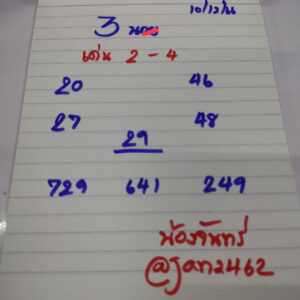 10/12/66
3 นอย
เด่น 2 - 4
20 46
27 48
29
729 641 249
น้องจันทร์
@Jan2462